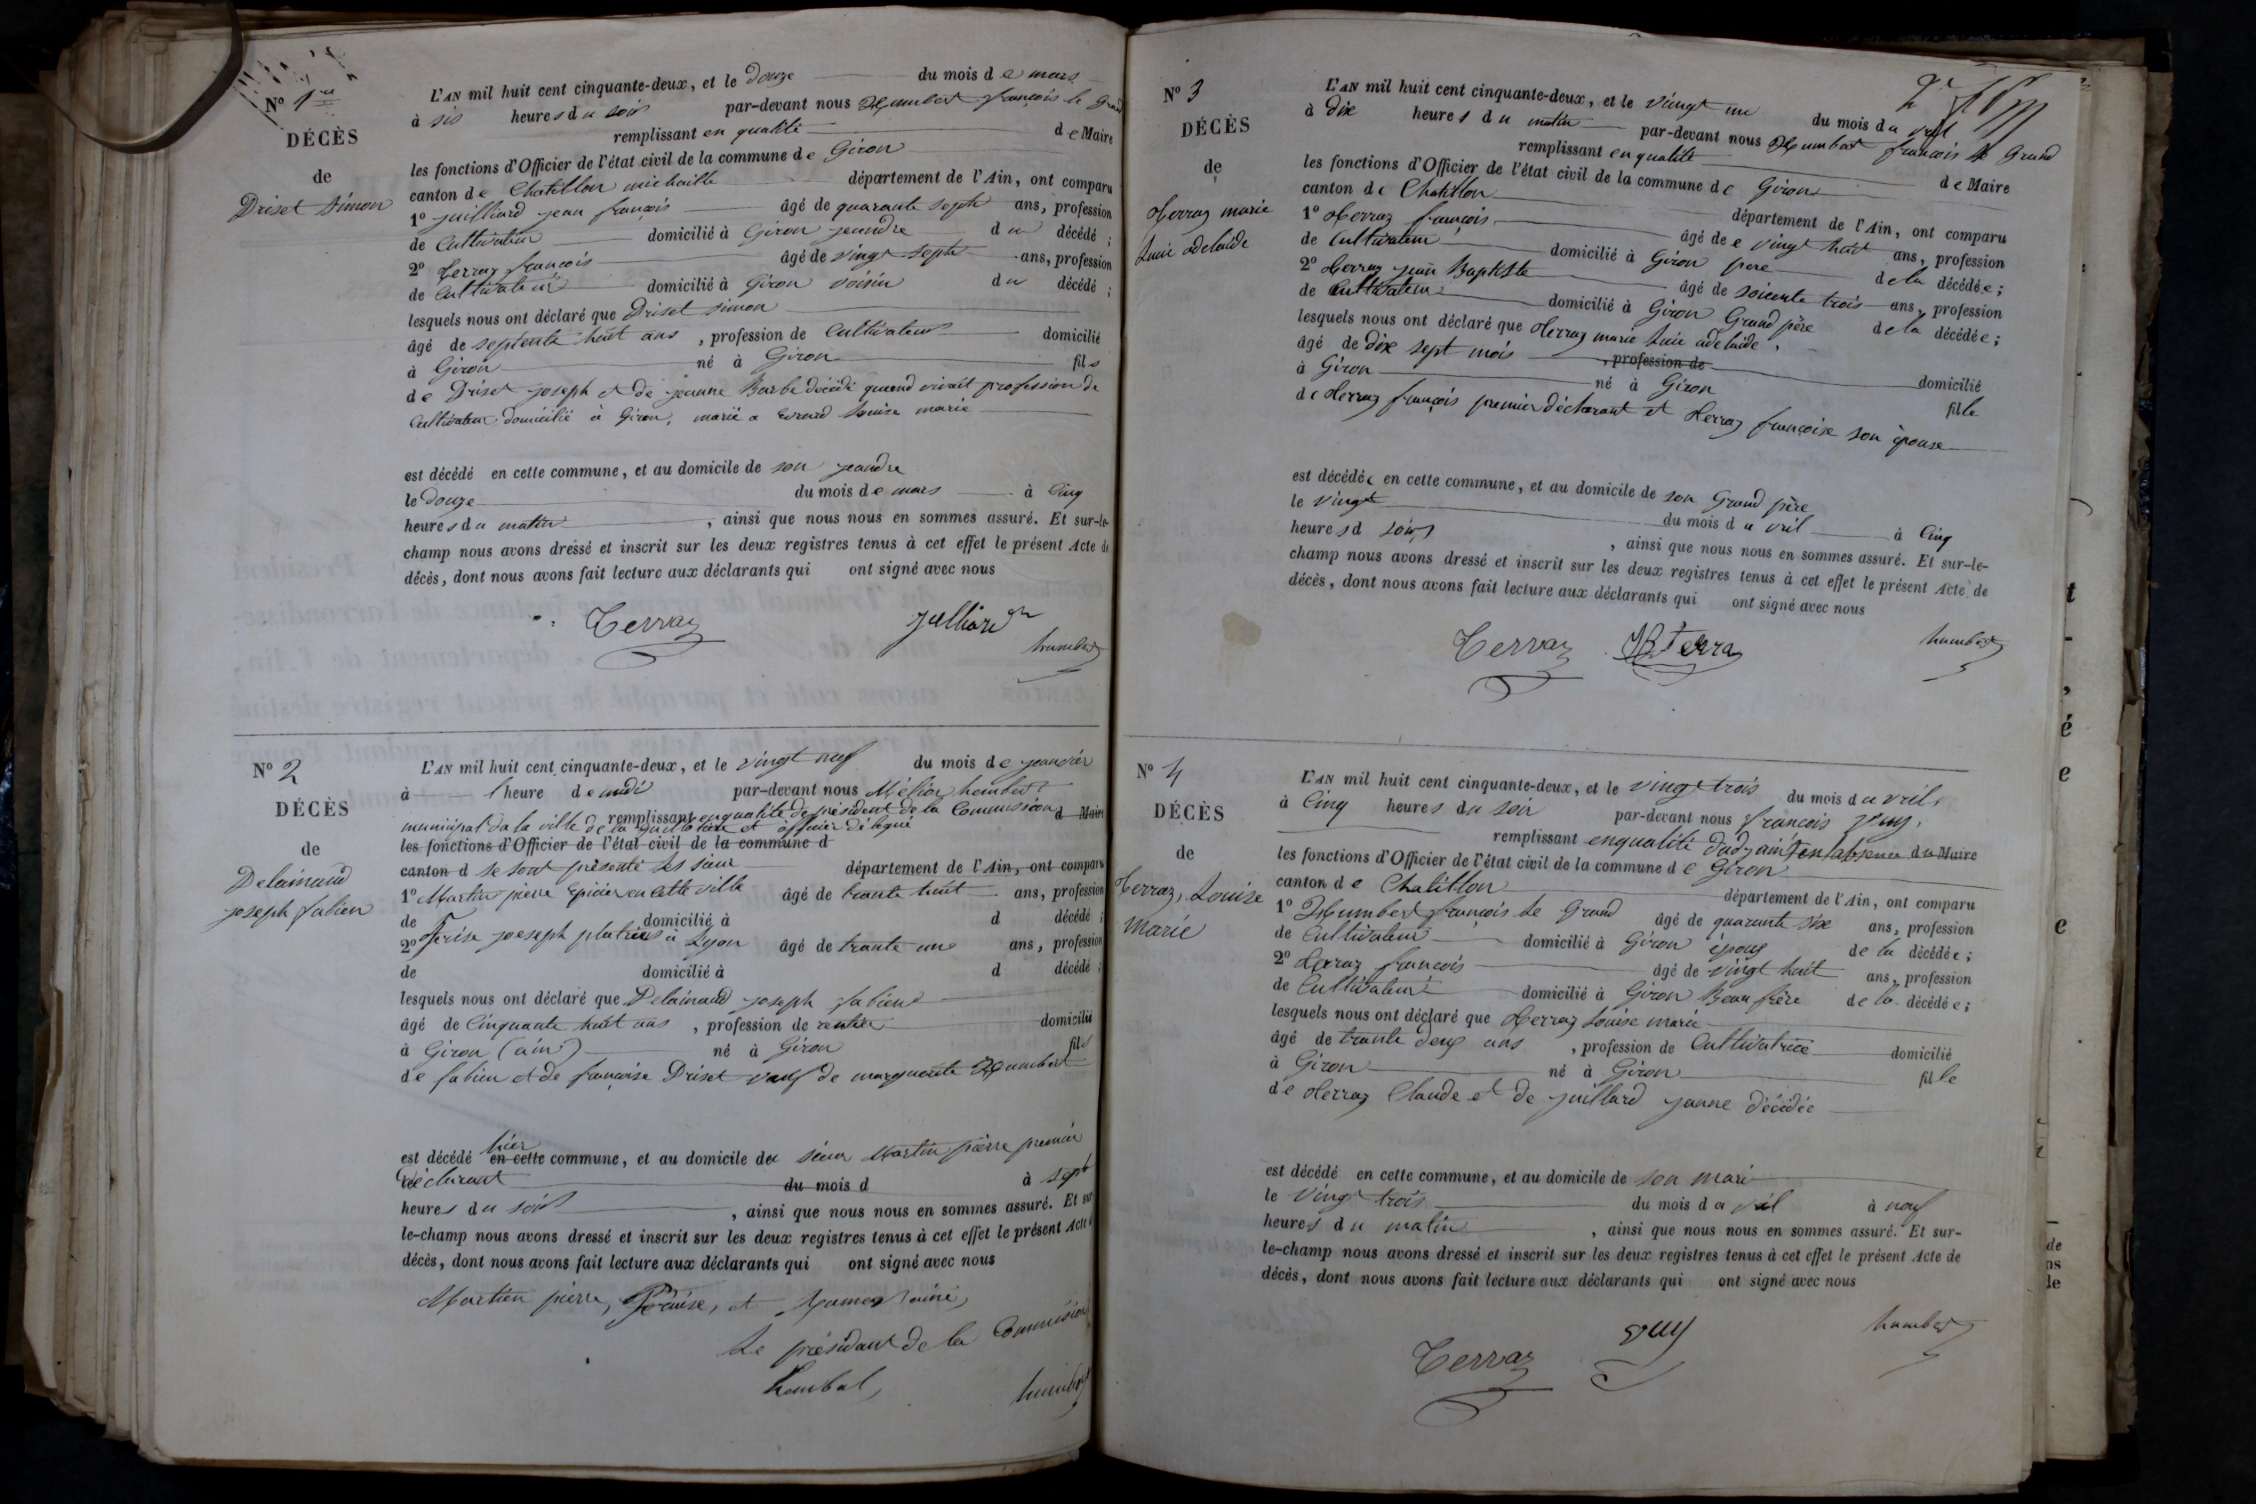 N° 1er
DÉCÈS
de
Driset Simon
L'AN mil huit cent cinquante-deux, et le douze du mois de mars
à six heures du soir par-devant nous Humbert françois le Grand
remplissant en qualité de Maire
les fonctions d'Officier de l'état civil de la commune de Giron
canton de Chatillon michaille département de l'Ain, ont comparu
1° juilliard jean françois âgé de quarante sept ans, profession
de Cultivateur domicilié à Giron jeandre du décédé ;
2° Terraz françois âgé de vingt sept ans, profession
de Cultivateur domicilié à Giron voisin du décédé ;
lesquels nous ont déclaré que Driset simon
âgé de septente huit ans , profession de Cultivateur domicilié
à Giron né à Giron fils
de Driset joseph et de jeanne Barbe décédé quand vivait profession de
Cultivateur domicilié à Giron, marié a Evrard Louise marie
est décédé en cette commune, et au domicile de son jeandre
le douze du mois de mars à Cinq
heures du matin , ainsi que nous nous en sommes assuré. Et sur-le-
champ nous avons dressé et inscrit sur les deux registres tenus à cet effet le présent Acte de
décès, dont nous avons fait lecture aux déclarants qui ont signé avec nous
Terraz
humbert
N° 2
DÉCÈS
de
Delainaud
joseph fabien
L'AN mil huit cent cinquante-deux, et le vingt neuf du mois de jeanvier
à l heure de midi par-devant nous Mélior hembert
remplissant en qualité de président de la Commission d Maire
municipal da la ville de la guillotière et officier délégué
les fonctions d'Officier de l'état civil de la commune d
canton d se sont présenté les sieur département de l'Ain, ont comparu
1° Martin pierre Epicier en cette ville âgé de trante huit ans, profession
de domicilié à d décédé ;
2° joeseph platrier à Lyon âgé de trante un ans, profession
de domicilié à d décédé ;
lesquels nous ont déclaré que Delainaud joseph fabien
âgé de Cinquante huit ans , profession de rentier domicilié
à Giron (ain) né à Giron fils
de fabien et de françoise Driset veuf de marguerite Humbert
est décédé hier en cette commune, et au domicile du sieur Martin pierre premier
déclarant du mois d à sept
heures du soir , ainsi que nous nous en sommes assuré. Et sur
le-champ nous avons dressé et inscrit sur les deux registres tenus à cet effet le présent Acte d
décès, dont nous avons fait lecture aux déclarants qui ont signé avec nous
Martin pierre, et
Le président de la Commission
humbert
N° 3
DÉCÈS
de
Terraz marie
Luie adelaide
L'AN mil huit cent cinquante-deux, et le vingt un du mois d avril
à dix heures du matin par-devant nous Humbert françois le Grand
remplissant en qualité de Maire
les fonctions d'Officier de l'état civil de la commune de Giron
canton de Chatillon département de l'Ain, ont comparu
1° Terraz françois âgé de e vingt huit ans, profession
de Cultivateur domicilié à Giron pere de la décédée ;
2° Terraz jean Baptiste âgé de soicente trois ans, profession
de Cultivateur domicilié à Giron Grand père de la décédée ;
lesquels nous ont déclaré que Terraz marie Luie adelaide,
âgé de dix sept mois , profession de domicilié
à Giron né à Giron fille
de Terraz françois premier déclarant et Terraz françoise son épouse
est décédée en cette commune, et au domicile de son Grand père
le vingt du mois d avril à Cinq
heures d soir , ainsi que nous nous en sommes assuré. Et sur-le-
champ nous avons dressé et inscrit sur les deux registres tenus à cet effet le présent Acte de
décès, dont nous avons fait lecture aux déclarants qui ont signé avec nous
Terraz JB Terraz
humbert
N° 4
DÉCÈS
de
Terraz, Louise
Marie
L'AN mil huit cent cinquante-deux, et le vingt trois du mois d avril
à Cinq heures du soir par-devant nous françois puy,
remplissant en qualité d'adjoint en l'absence du Maire
les fonctions d'Officier de l'état civil de la commune de Giron
canton de Chatillon département de l'Ain, ont comparu
1° Humbert françois le Grand âgé de quarante six ans, profession
de Cultivateur domicilié à Giron époux de la décédée ;
2° Terraz françois âgé de vingt huit ans, profession
de Cultivateur domicilié à Giron Beau frère de la décédée ;
lesquels nous ont déclaré que Terraz Louise marie
âgé de trante deux ans , profession de Cultivatrice domicilié
à Giron né à Giron fille
de Terraz Claude et de juillard jeanne décédée
est décédé en cette commune, et au domicile de son mari
le vingt trois du mois d avril à neuf
heures du matin , ainsi que nous nous en sommes assuré. Et sur-
le-champ nous avons dressé et inscrit sur les deux registres tenus à cet effet le présent Acte de
décès, dont nous avons fait lecture aux déclarants qui ont signé avec nous
Terraz puy humbert